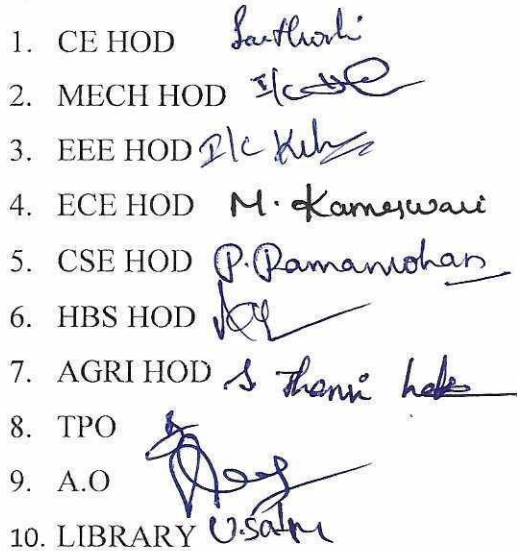 1. CE HOD Santhoshi
2. MECH HOD I/c
3. EEE HOD I/c
4. ECE HOD M. Kameswari
5. CSE HOD P. Ramamohan
6. HBS HOD
7. AGRI HOD S
8. TPO
9. A.O
10. LIBRARY U.Satya